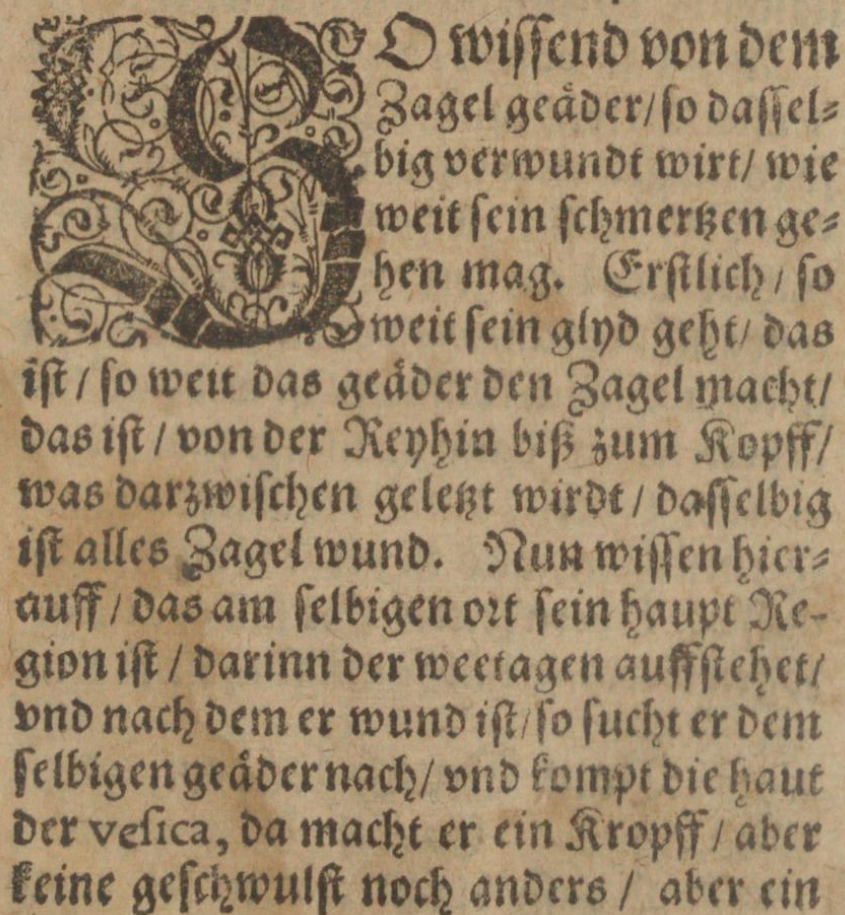 SO wissend von dem
Zagel geäder/ so dassel-
big verwundt wirt/ wie
weit sein schmertzen ge-
hen mag. Erstlich/ so
weit sein glyd geht/ das
ist/ so weit das geäder den Zagel macht/
das ist/ von der Reyhin biß zum Kopff/
was darzwischen geletzt wirdt/ dasselbig
ist alles Zagel wund. Nun wissen hier-
auff/ das am selbigen ort sein haupt Re-
gion ist/ darinn der weetagen auffstehet/
vnd nach dem er wund ist/ so sucht er dem
selbigen geäder nach/ vnd kompt die haut
der vesica, da macht er ein Kropff/ aber
keine geschwulst noch anders/ aber ein